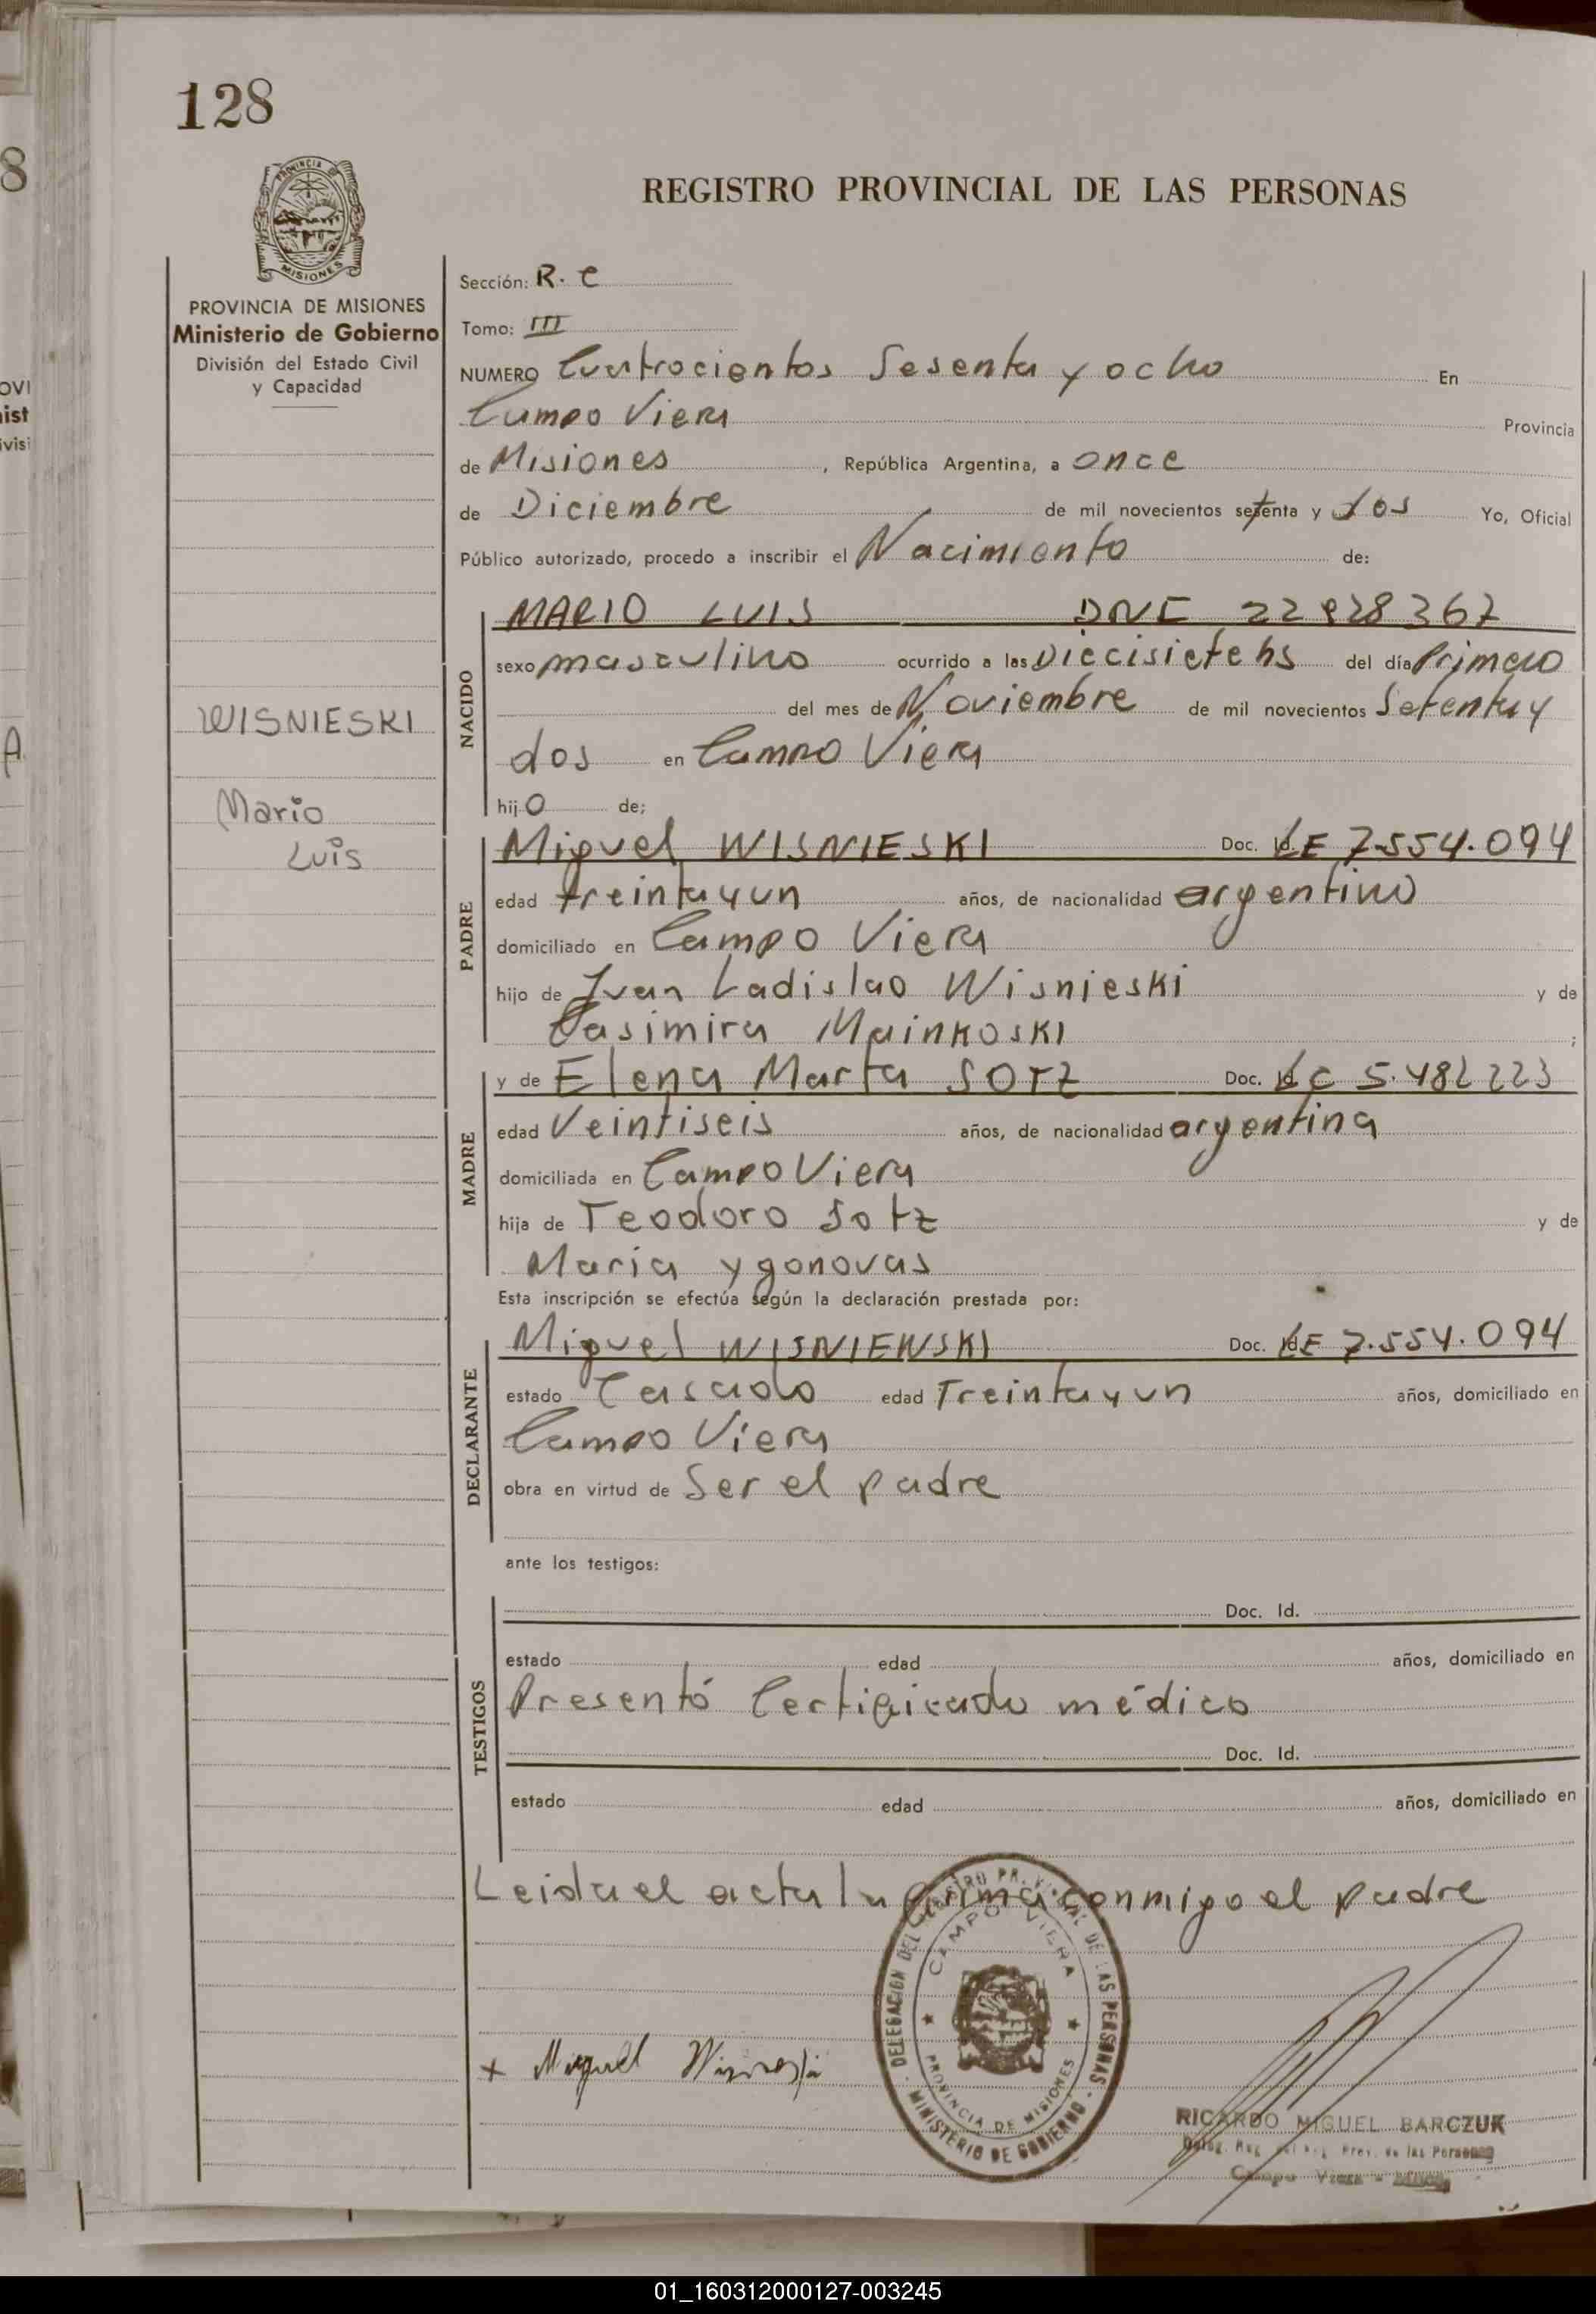 128
REGISTRO PROVINCIAL DE LAS PERSONAS
PROVINCIA MISIONES
PROVINCIA DE MISIONES
Ministerio de Gobierno
División del Estado Civil
y Capacidad
WISNIESKI
Mario
Luis
Sección: R. C
Tomo: III
NUMERO Cuatrocientos Sesenta y ocho En
Campo Viera Provincia
de Misiones, República Argentina, a once
de Diciembre de mil novecientos setenta y dos Yo, Oficial
Público autorizado, procedo a inscribir el Nacimiento de:
NACIDO
MARIO LUIS 22 828 367
sexo masculino ocurrido a las Diecisiete hs del día Primero
del mes de Noviembre de mil novecientos Setenta y
dos en Campo Viera
hijo de;
PADRE
Miguel WISNIESKI Doc. Id. LE 7.554.094
edad treinta y un años, de nacionalidad argentino
domiciliado en Campo Viera
hijo de Ivan Ladislao Wisnieski y de
Casimira Mainkoski ;
MADRE
y de Elena Marta SOTZ Doc. Id. LC 5.482223
edad Veintiseis años, de nacionalidad argentina
domiciliada en Campo Viera
hija de Teodoro Sotz y de
María ygonovas
Esta inscripción se efectúa según la declaración prestada por:
DECLARANTE
Miguel WISNIEWSKI Doc. Id. LE 7.554.094
estado Casado edad Treinta y un años, domiciliado en
Campo Viera
obra en virtud de Ser el padre
ante los testigos:
TESTIGOS
Doc. Id.
estado edad años, domiciliado en
Presentó Certificado médico
Doc. Id.
estado edad años, domiciliado en
Leida el acta la firma conmigo el padre
DELEGACION DEL REGISTRO PROVINCIAL DE LAS PERSONAS
CAMPO VIERA
PROVINCIA DE MISIONES
MINISTERIO DE GOBIERNO
x Miguel Wisnieski
RICARDO MIGUEL BARCZUK
Prov. de las Personas
Campo Viera
01_160312000127-003245